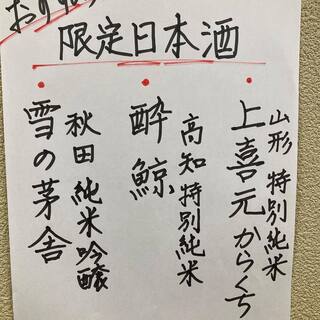 限定日本酒
山形 特別純米
上喜元からくち
高知特別純米
酔鯨
秋田 純米吟醸
雪の茅舎